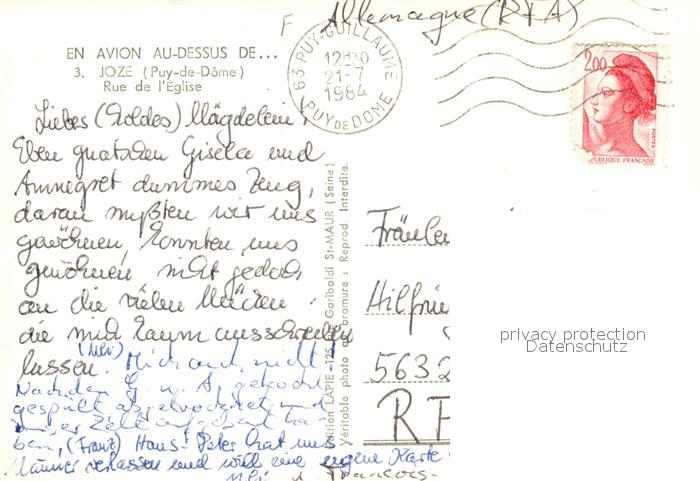 F Allemagne (RFA)
EN AVION AU-DESSUS DE...
3. JOZE (Puy-de-Dôme)
Rue de l'Église
63 PUY-GUILLAUME
12H30
21-7
1984
PUY DE DOME
2,00
POSTES
REPUBLIQUE FRANÇAISE
Liebes (Holdes) Mägdelein!
Eben quatschen Gisela und
Annegret dummes Zeug,
daran mußten wir uns
gewöhnen, konnten uns
gewöhnen, nicht jedoch
an die vielen Mücken
die mich kaum ausschlafen
lassen. (Uli) Mich auch nicht!
Nachdem G. u. A. gekocht
gespült abgetrocknet und
unser Zelt aufgebaut ha-
ben, (Franz) Hans-Peter hat uns
Männer verlassen und will eine eigene Karte
Uli François-
Edition LAPIE - 125, de Garibaldi St-MAUR (Seine)
Véritable photo au bromure : Reprod. Interdite.
Fräulei
Hilfrie
5632
RF
privacy protection
Datenschutz